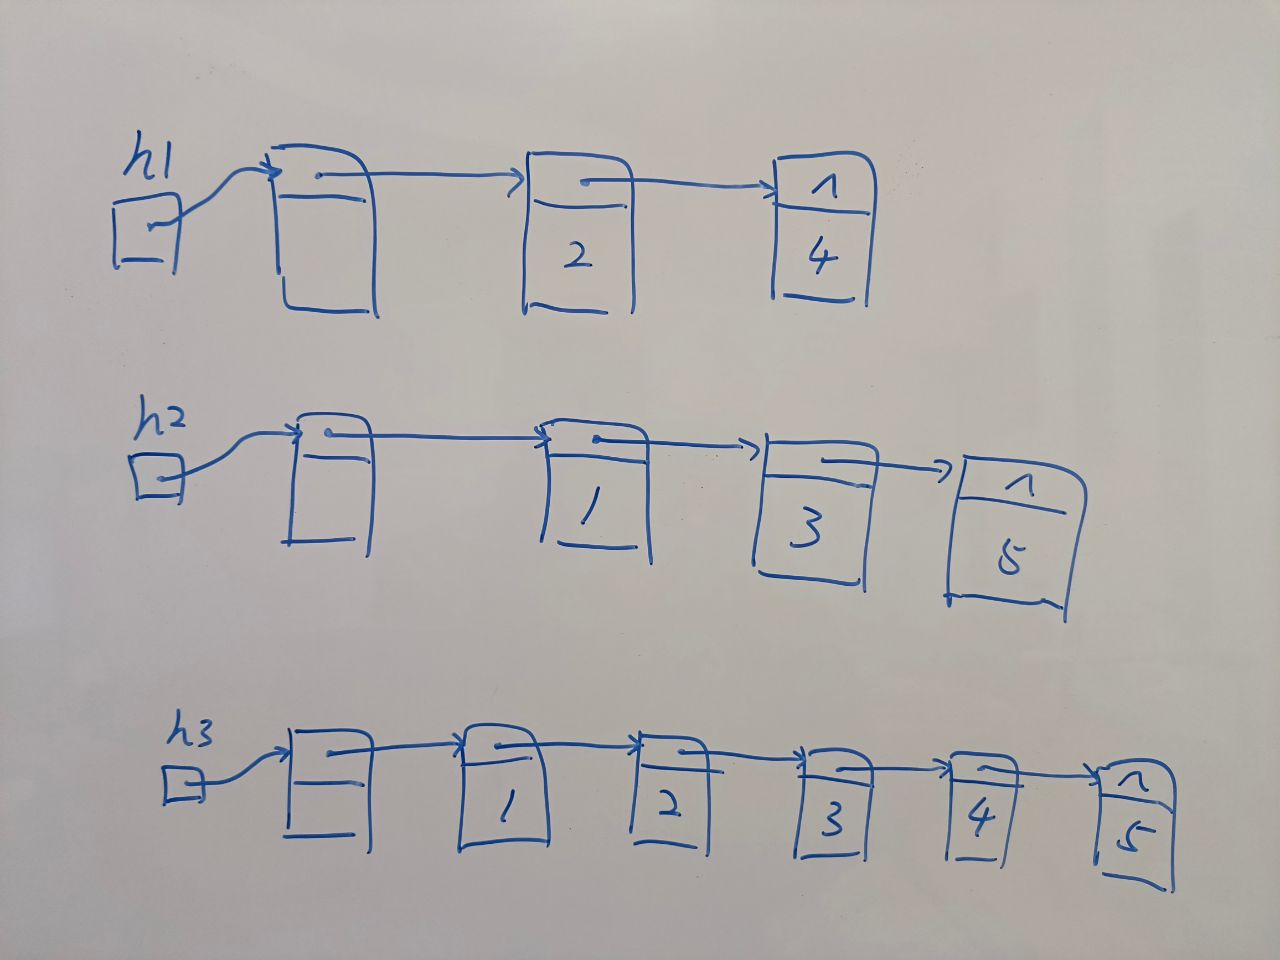 h1
Λ
2 4
h2
Λ
1 3 5
h3
Λ
1 2 3 4 5